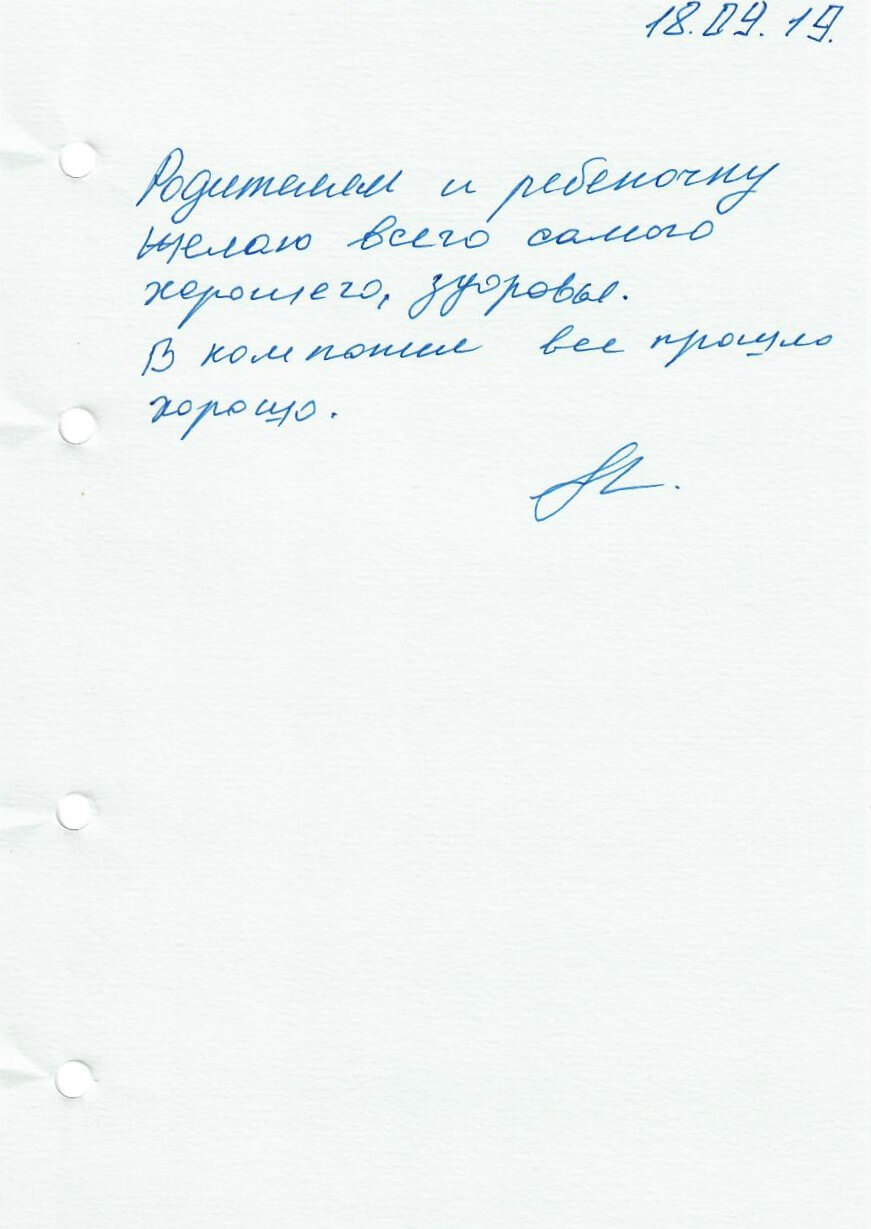 18.09.19.
Родителям и ребеночку
желаю всего самого
хорошего, здоровья.
В компании все прошло
хорошо.